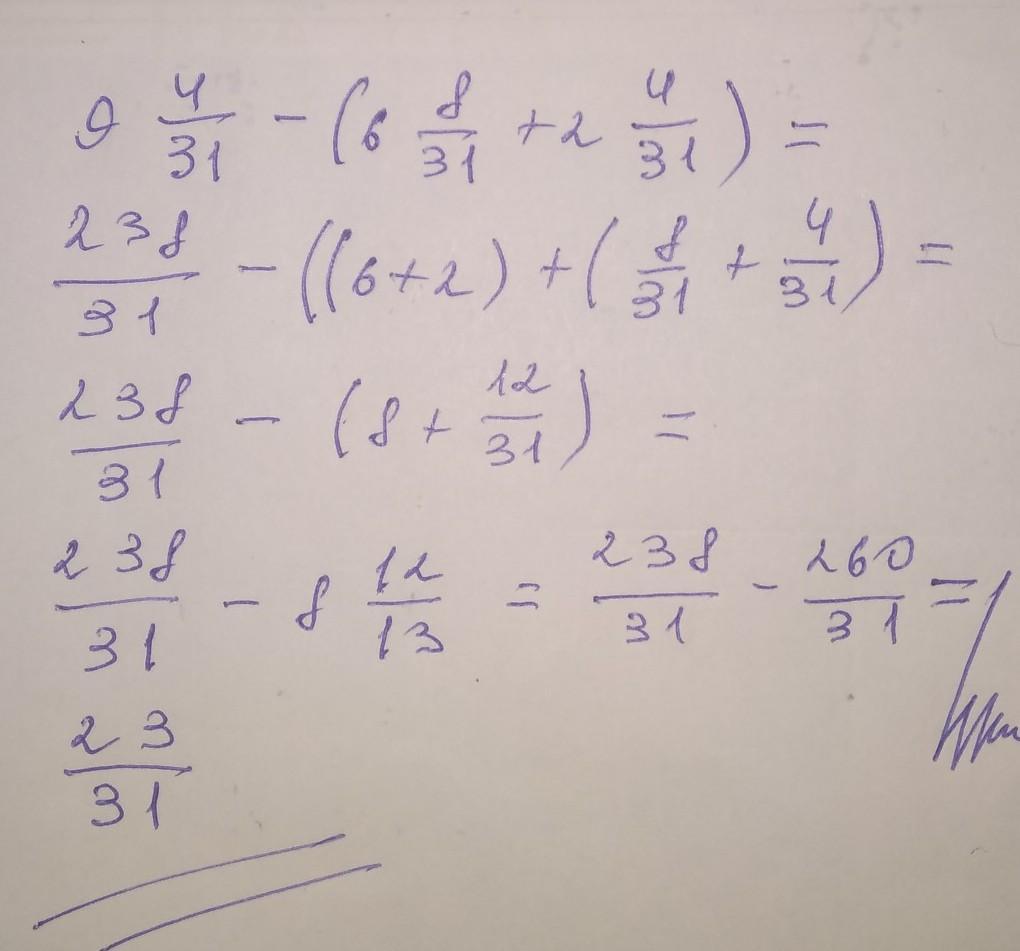 9 4/31 - (6 8/31 + 2 4/31) =
238/31 - ((6+2) + (8/31 + 4/31) =
238/31 - (8 + 12/31) =
238/31 - 8 12/13 = 238/31 - 260/31 =
23/31